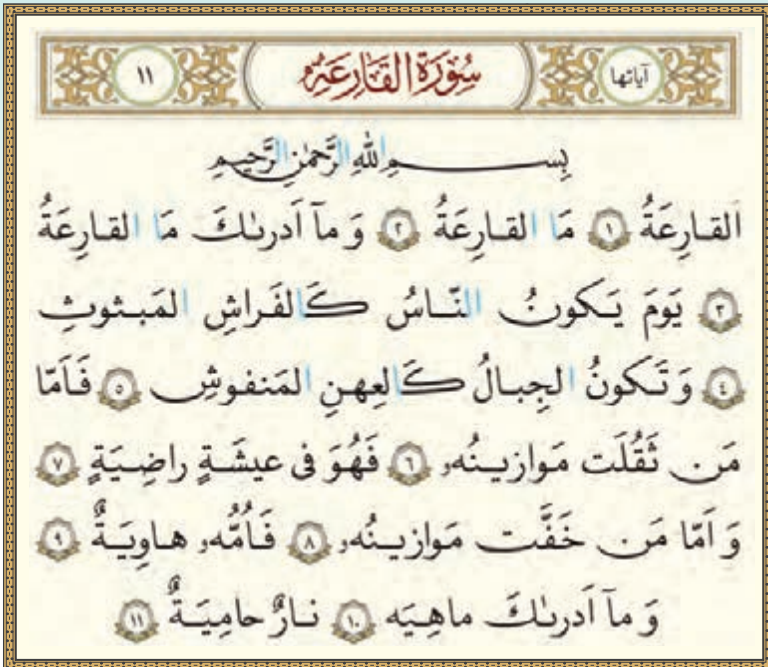 آیاتها سُورَةُ القَارِعَة ۱۱
بِسـمِ اللهِ الرَّحمٰنِ الرَّحیمِ
اَلقارِعَةُ ۱ مَا القارِعَةُ ۲ وَ مآ اَدرىٰكَ مَا القارِعَةُ
۳ يَومَ يَكونُ النّاسُ كَالفَراشِ المَبثوثِ
٤ وَ تَكونُ الجِبالُ كَالعِهنِ المَنفوشِ ٥ فَاَمّا
مَن ثَقُلَت مَوازينُهُۥ ٦ فَهُوَ فى عيشَةٍ راضِيَةٍ ۷
وَ اَمّا مَن خَفَّت مَوازينُهُۥ ۸ فَاُمُّهُۥ هاوِيَةٌ ۹
وَ مآ اَدرىٰكَ ماهِيَه ۱۰ نارٌ حامِيَةٌ ۱۱